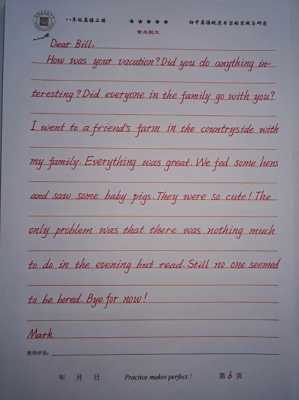 八年级英语上册
★★★★★
Dear Bill,
How was your vacation? Did you do anything in-
teresting? Did everyone in the family go with you?
I went to a friend's farm in the countryside with
my family. Everything was great. We fed some hens
and saw some baby pigs. They were so cute! The
only problem was that there was nothing much
to do in the evening but read. Still no one seemed
to be bored. Bye for now!
Mark
年 月 日 Practice makes perfect! 第 6 页